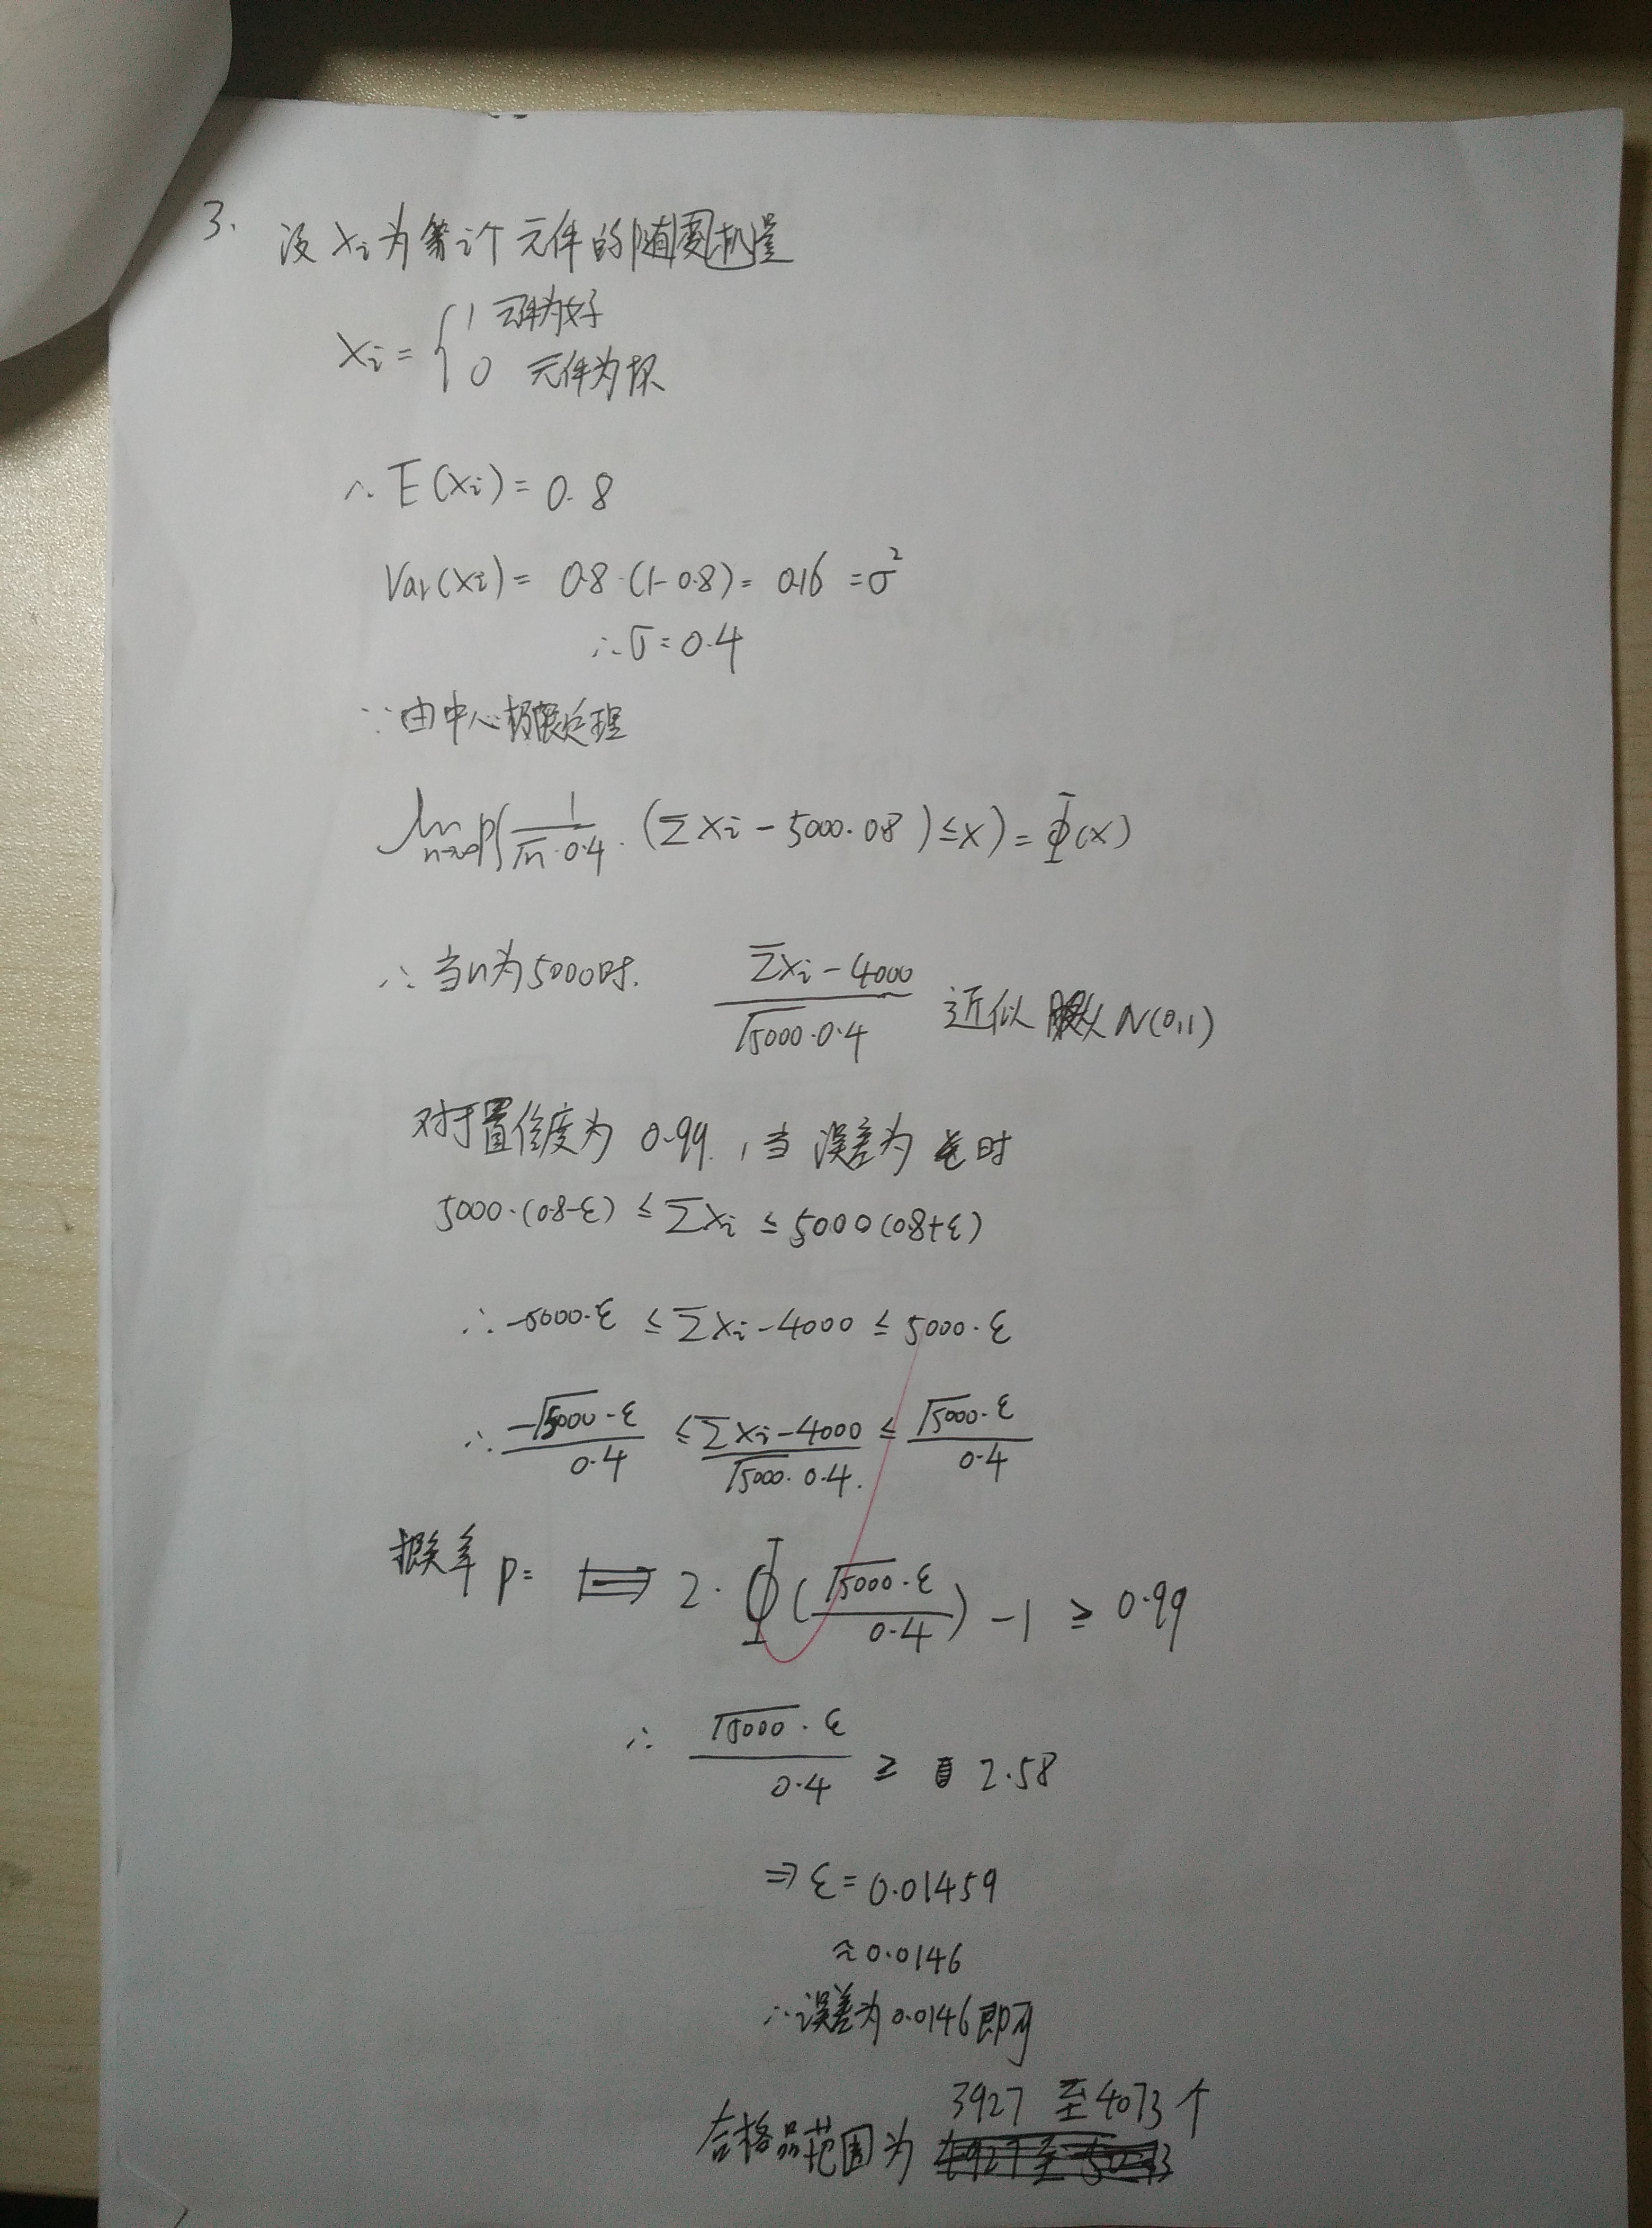 3. 设 Xi 为第 i 个元件的随机变量
Xi = { 1 元件为好
0 元件为坏
∴ E(Xi) = 0.8
Var(Xi) = 0.8·(1-0.8) = 0.16 = σ²
∴ σ = 0.4
∵ 由中心极限定理
lim n→∞ P( 1/(√n·0.4) · (ΣXi - 5000·0.8) ≤ x) = Φ(x)
∴ 当n为5000时. (ΣXi - 4000)/(√5000·0.4) 近似服从 N(0,1)
对于置信度为 0.99, 当误差为 ε 时
5000·(0.8-ε) ≤ ΣXi ≤ 5000(0.8+ε)
∴ -5000·ε ≤ ΣXi - 4000 ≤ 5000·ε
∴ -√5000·ε/0.4 ≤ (ΣXi - 4000)/(√5000·0.4) ≤ √5000·ε/0.4
概率 P= 2·Φ(√5000·ε/0.4) - 1 ≥ 0.99
∴ √5000·ε/0.4 ≥ 2.58
⇒ ε = 0.01459
≈ 0.0146
∴ 误差为 0.0146 即可
3927 至 4073 个
合格品范围为